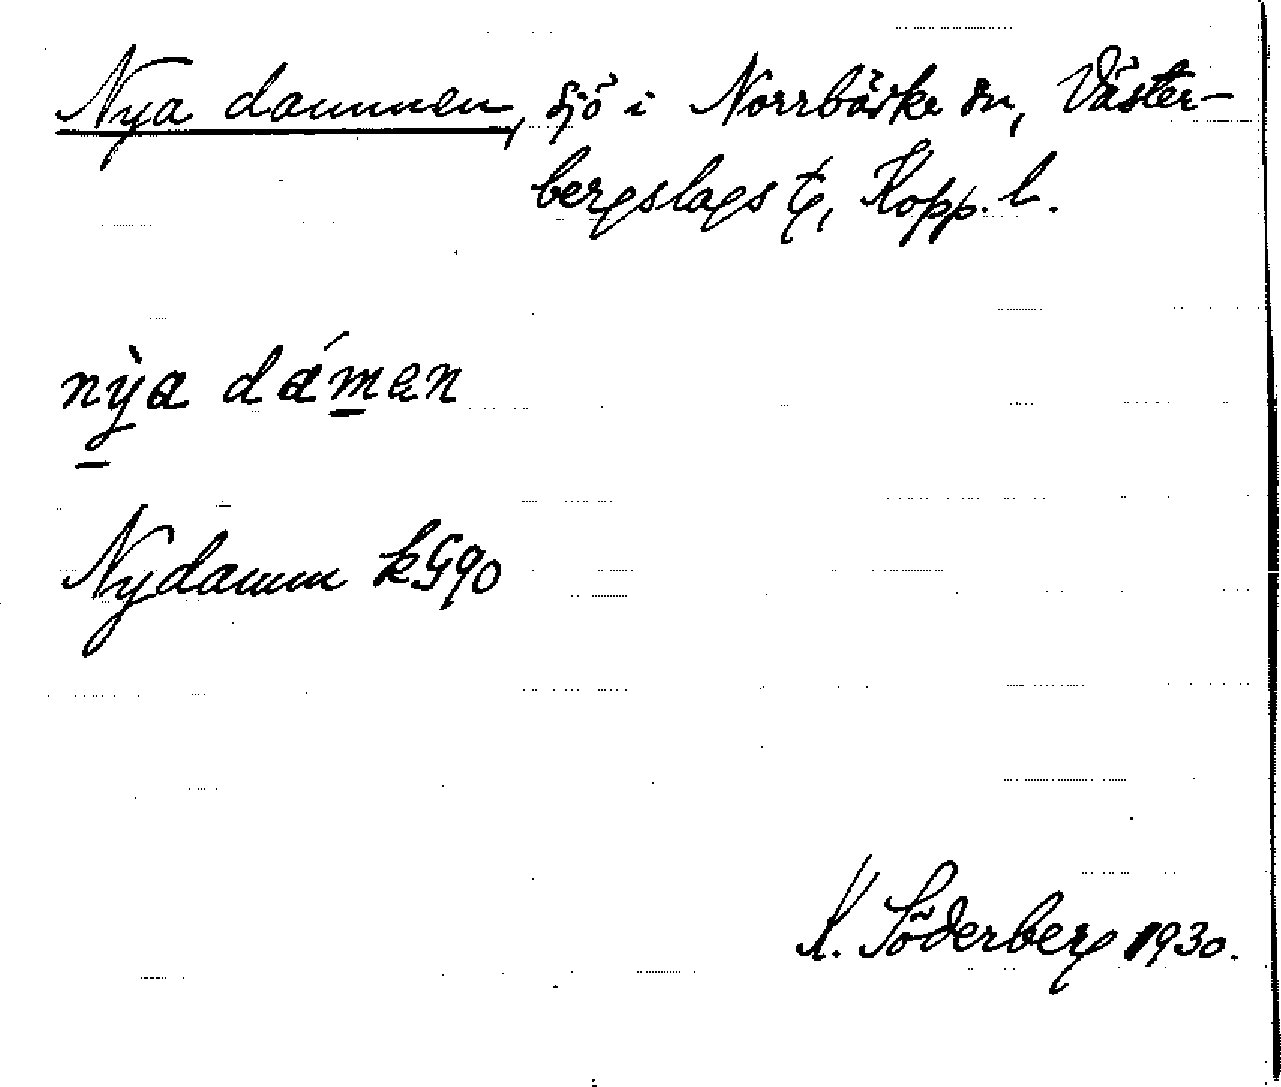 Nya dammen, sjö i Norrbärke sn, Väster-
bergslags tg, Kopp. l.
nỳa dámen
Nydamm kG90
K. Söderberg 1930.